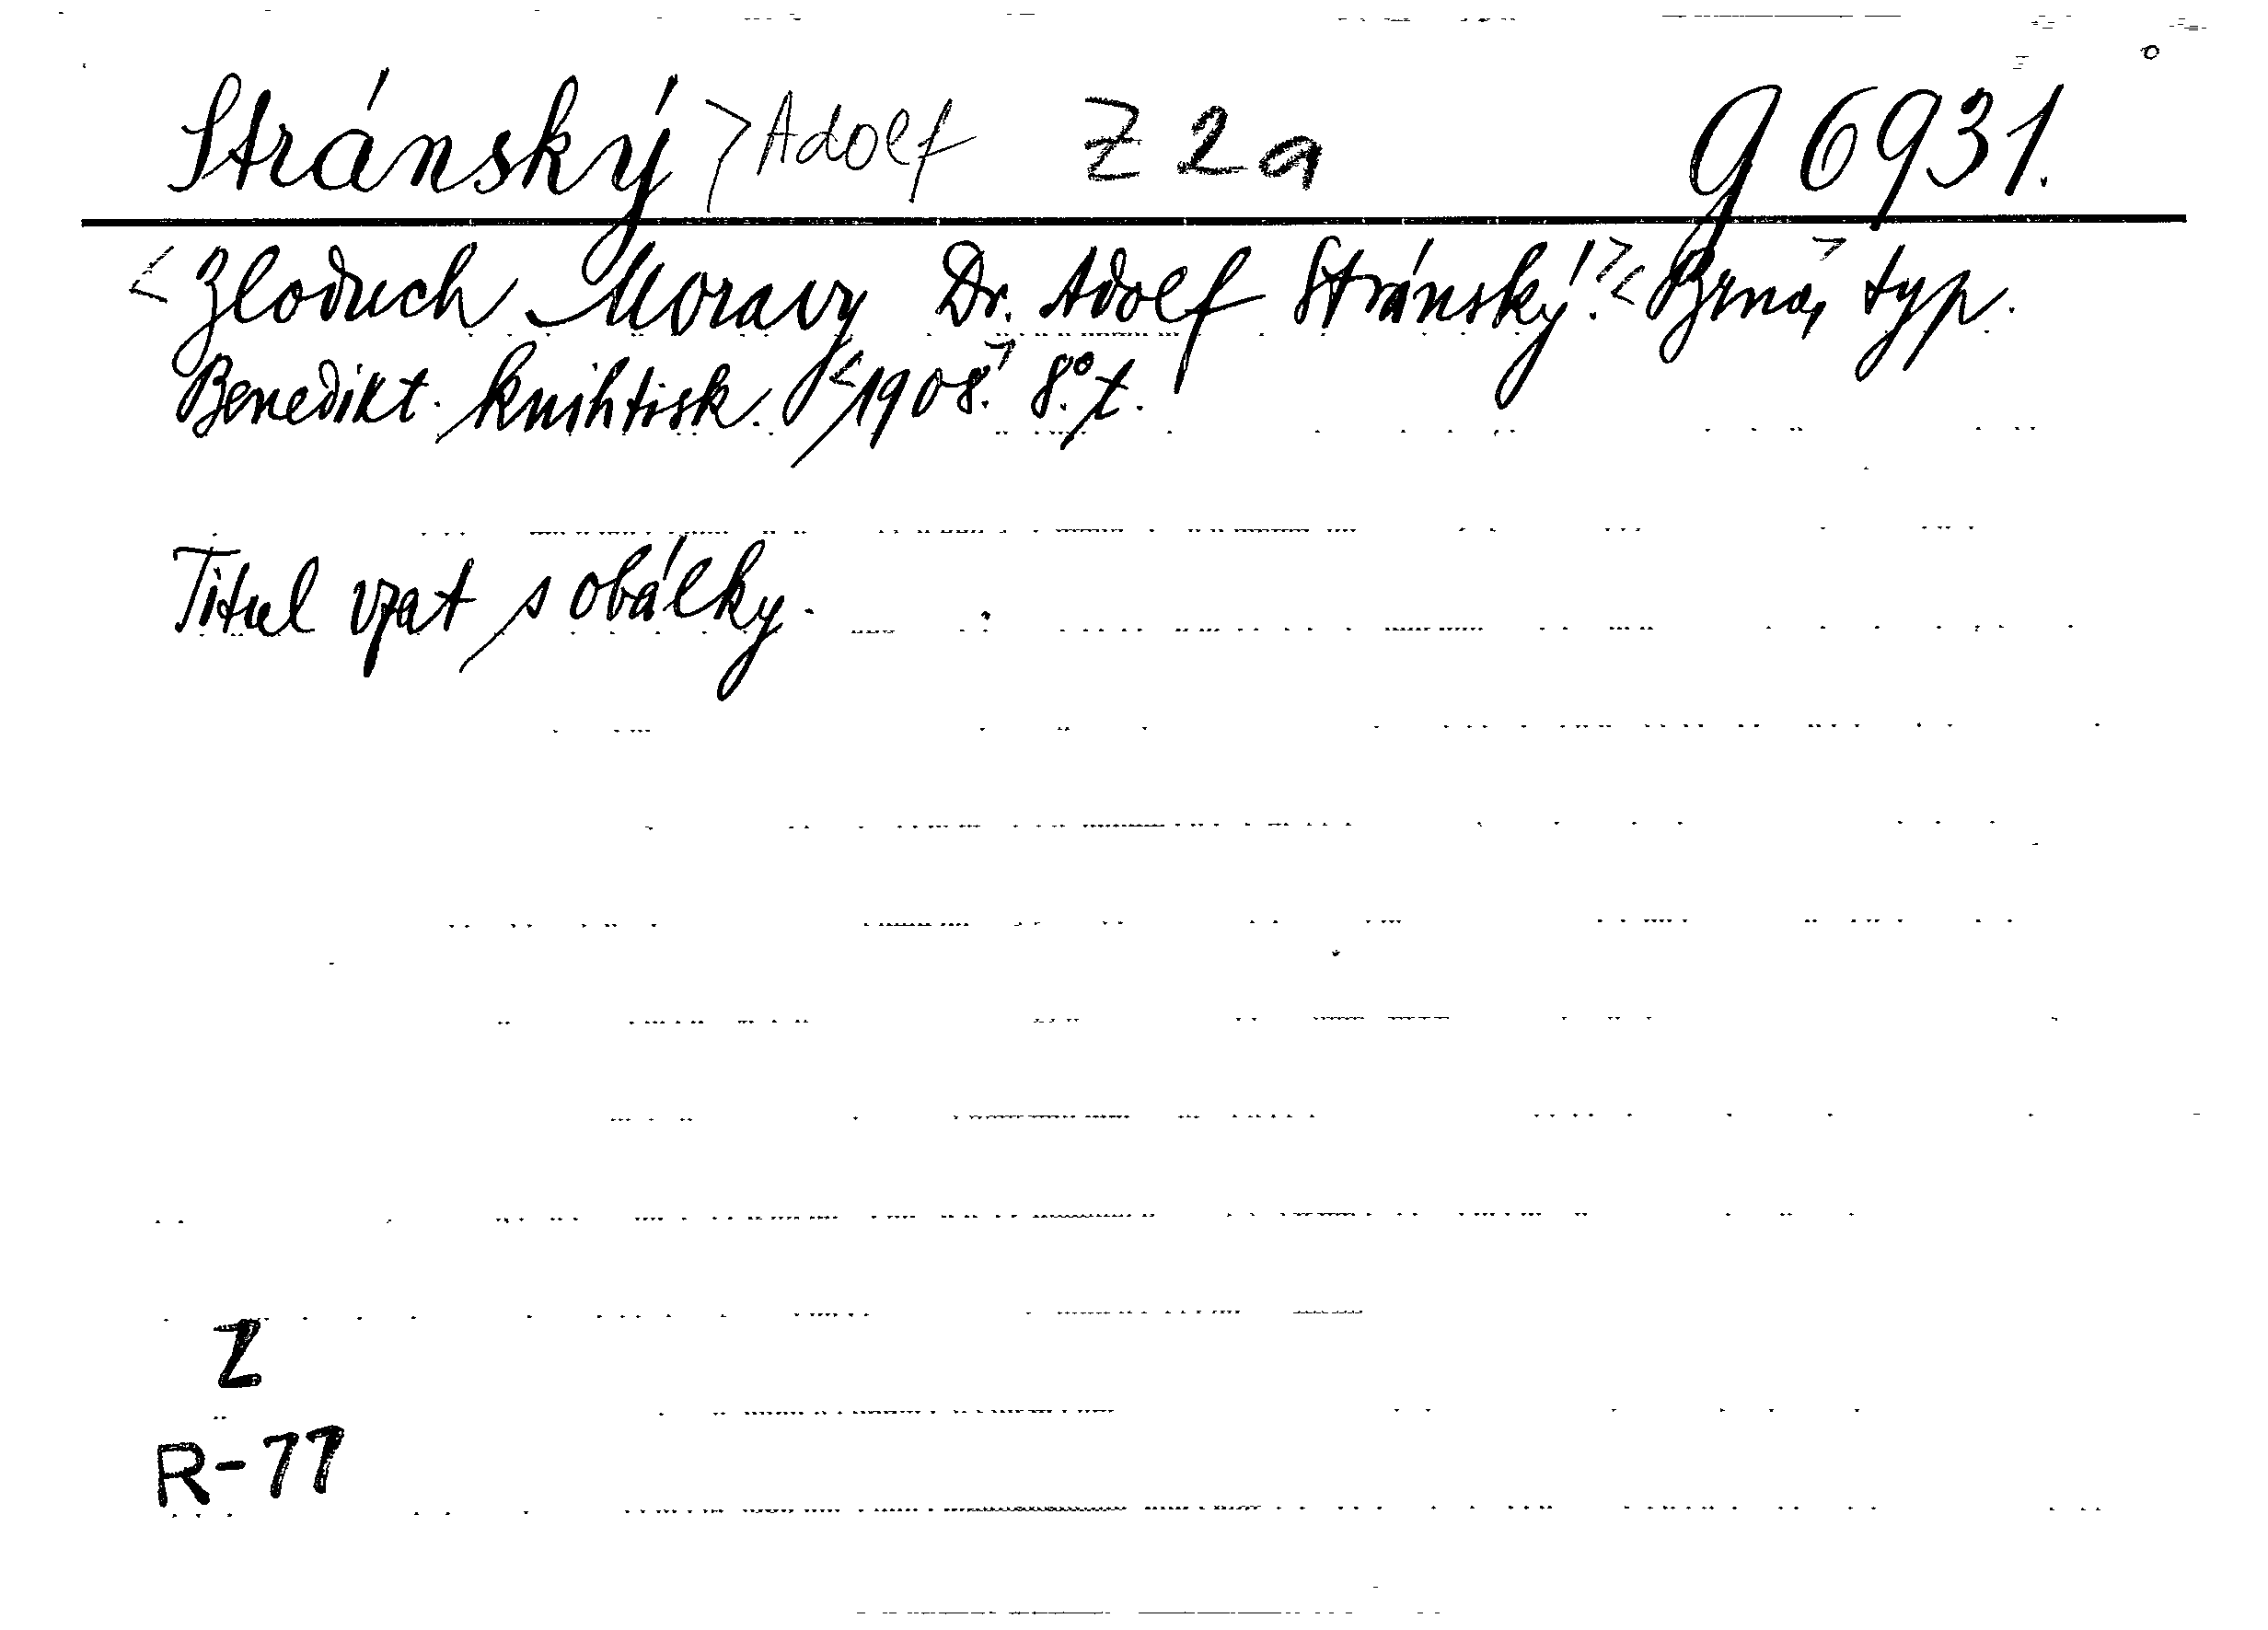 Stránský, > Adolf Z 2a g 6931.
<Zloduch Moravy Dr. Adolf Stránský.!> <Brno,> typ.
Benedikt. knihtisk. <1908.> 8.° t.
Titul vzat s obálky.
Z
R-77